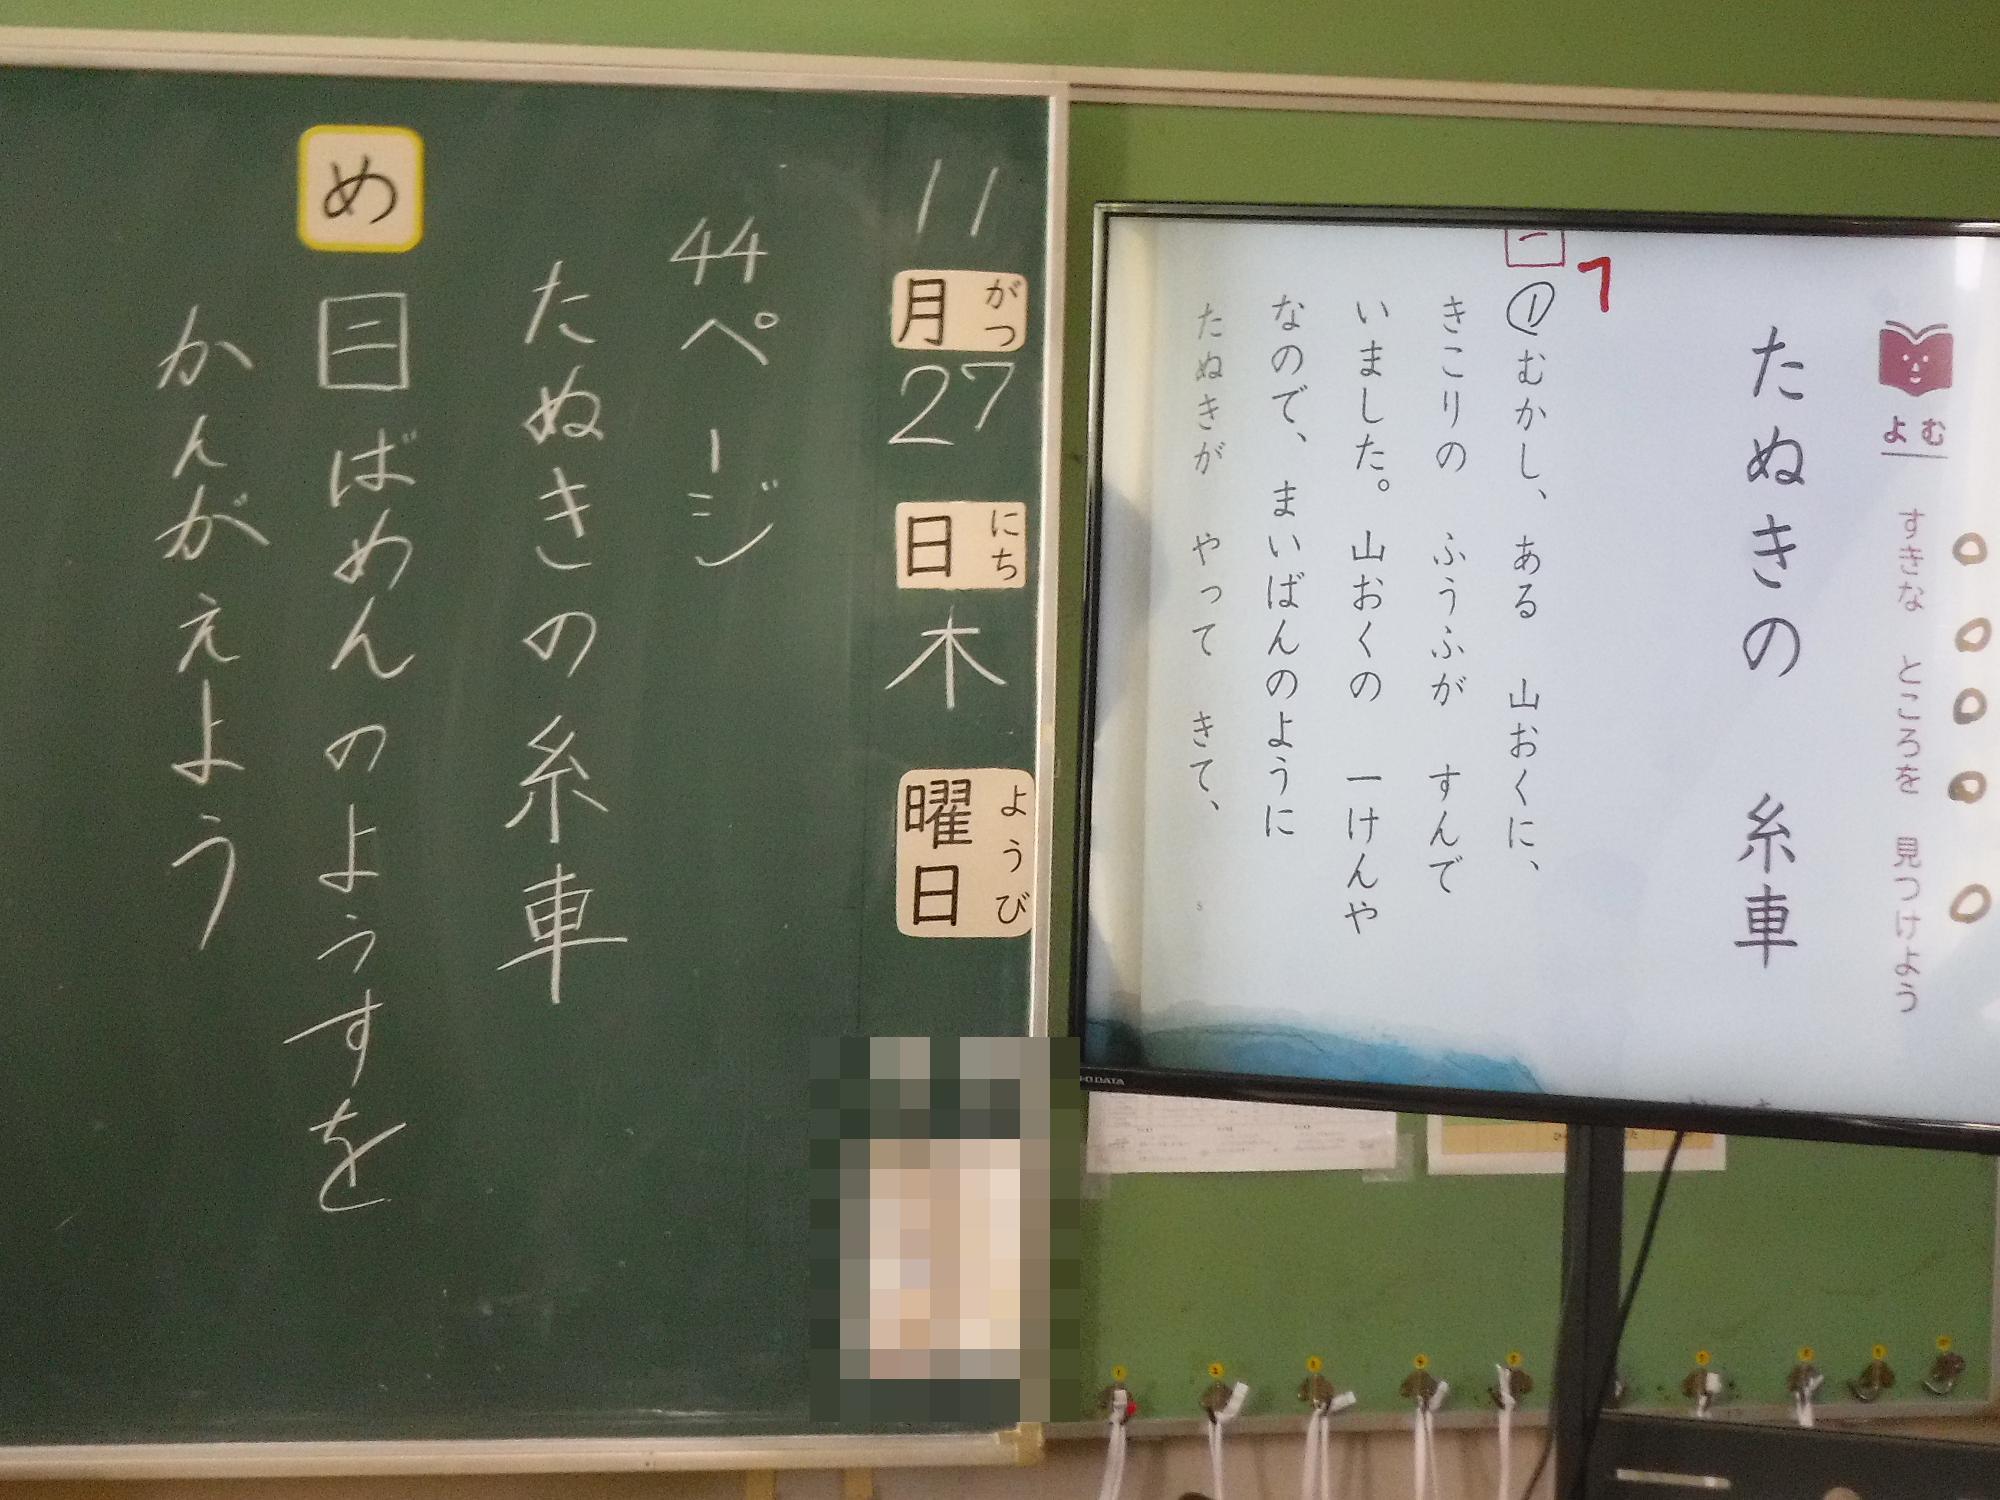 11月27日木曜日
がつ
にち
ようび
44ページ
たぬきの糸車
め
二ばめんのようすを
かんがえよう
よむ
すきな ところを 見つけよう
たぬきの 糸車
1
一
①むかし、ある 山おくに、
きこりの ふうふが すんで
いました。山おくの 一けんや
なので、まいばんのように
たぬきが やって きて、
I-O DATA